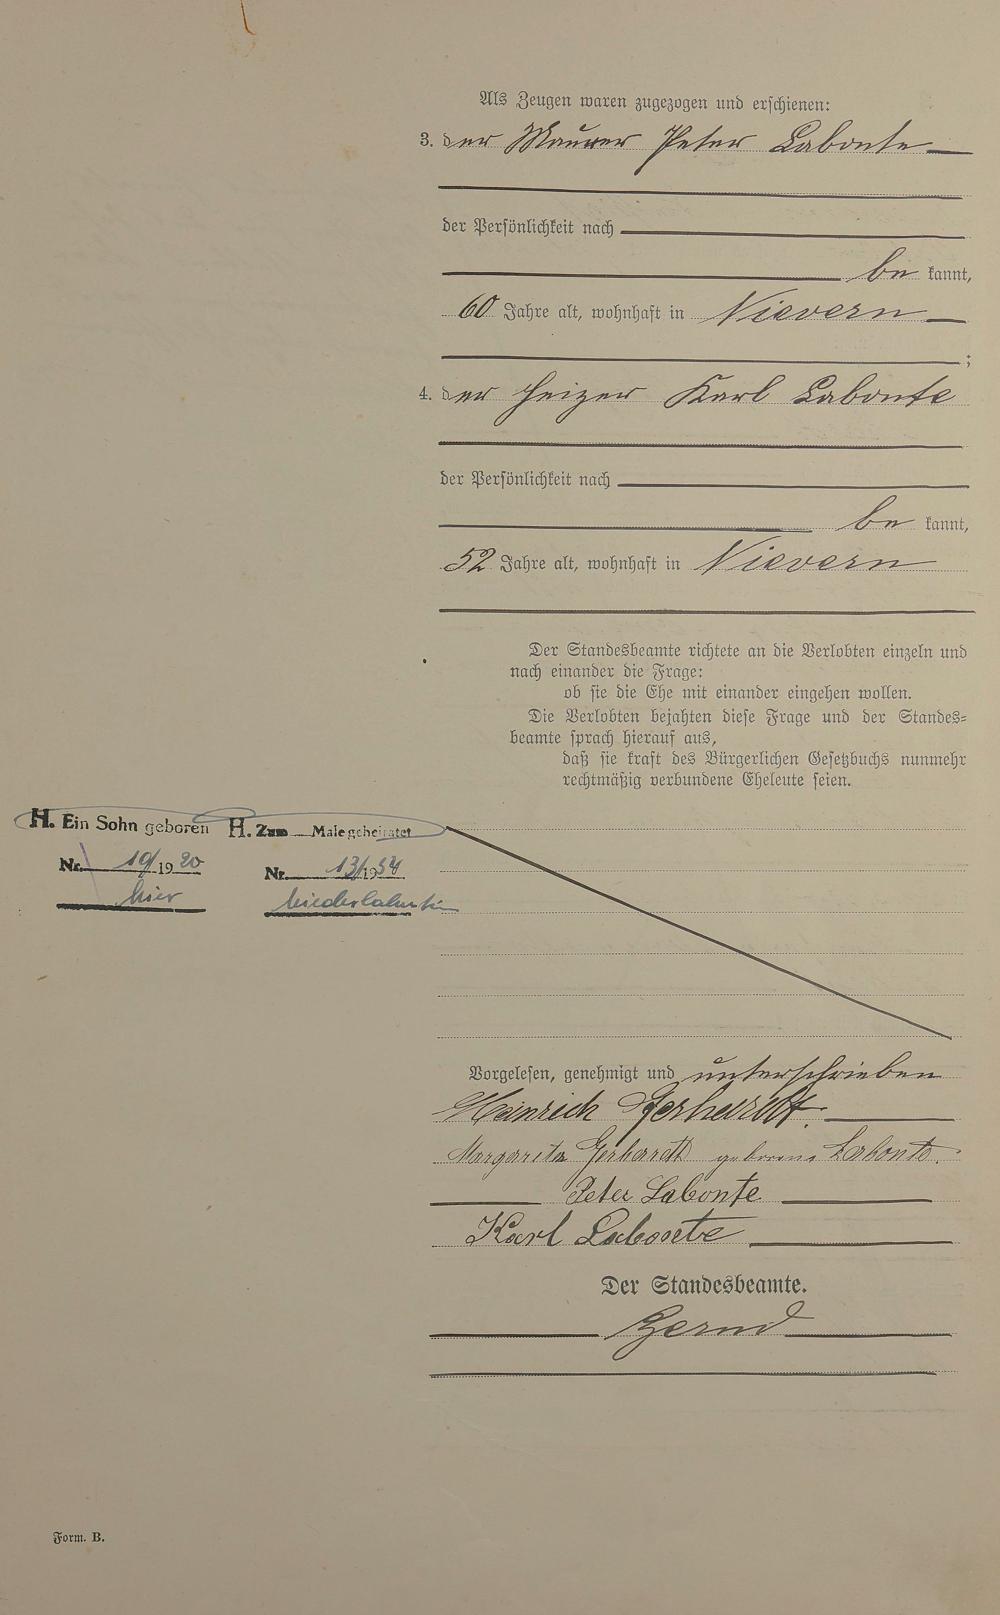 Als Zeugen waren zugezogen und erschienen:
3. der Maurer Peter Labonte
der Persönlichkeit nach
be kannt,
60 Jahre alt, wohnhaft in Nievern
;
4. der Heizer Karl Labonte
der Persönlichkeit nach
be kannt,
52 Jahre alt, wohnhaft in Nievern
Der Standesbeamte richtete an die Verlobten einzeln und
nach einander die Frage:
ob sie die Ehe mit einander eingehen wollen.
Die Verlobten bejahten diese Frage und der Standes=
beamte sprach hierauf aus,
daß sie kraft des Bürgerlichen Gesetzbuchs nunmehr
rechtmäßig verbundene Eheleute seien.
H. Ein Sohn geboren
Nr. 19/1920
hier
H. Zum Male geheiratet
Nr. 13/1954
Vorgelesen, genehmigt und unterschrieben
Heinrich Gerhardt.
Margareta Gerhardt geborene Labonte.
Peter Labonte
Karl Labonte
Der Standesbeamte.
Form. B.